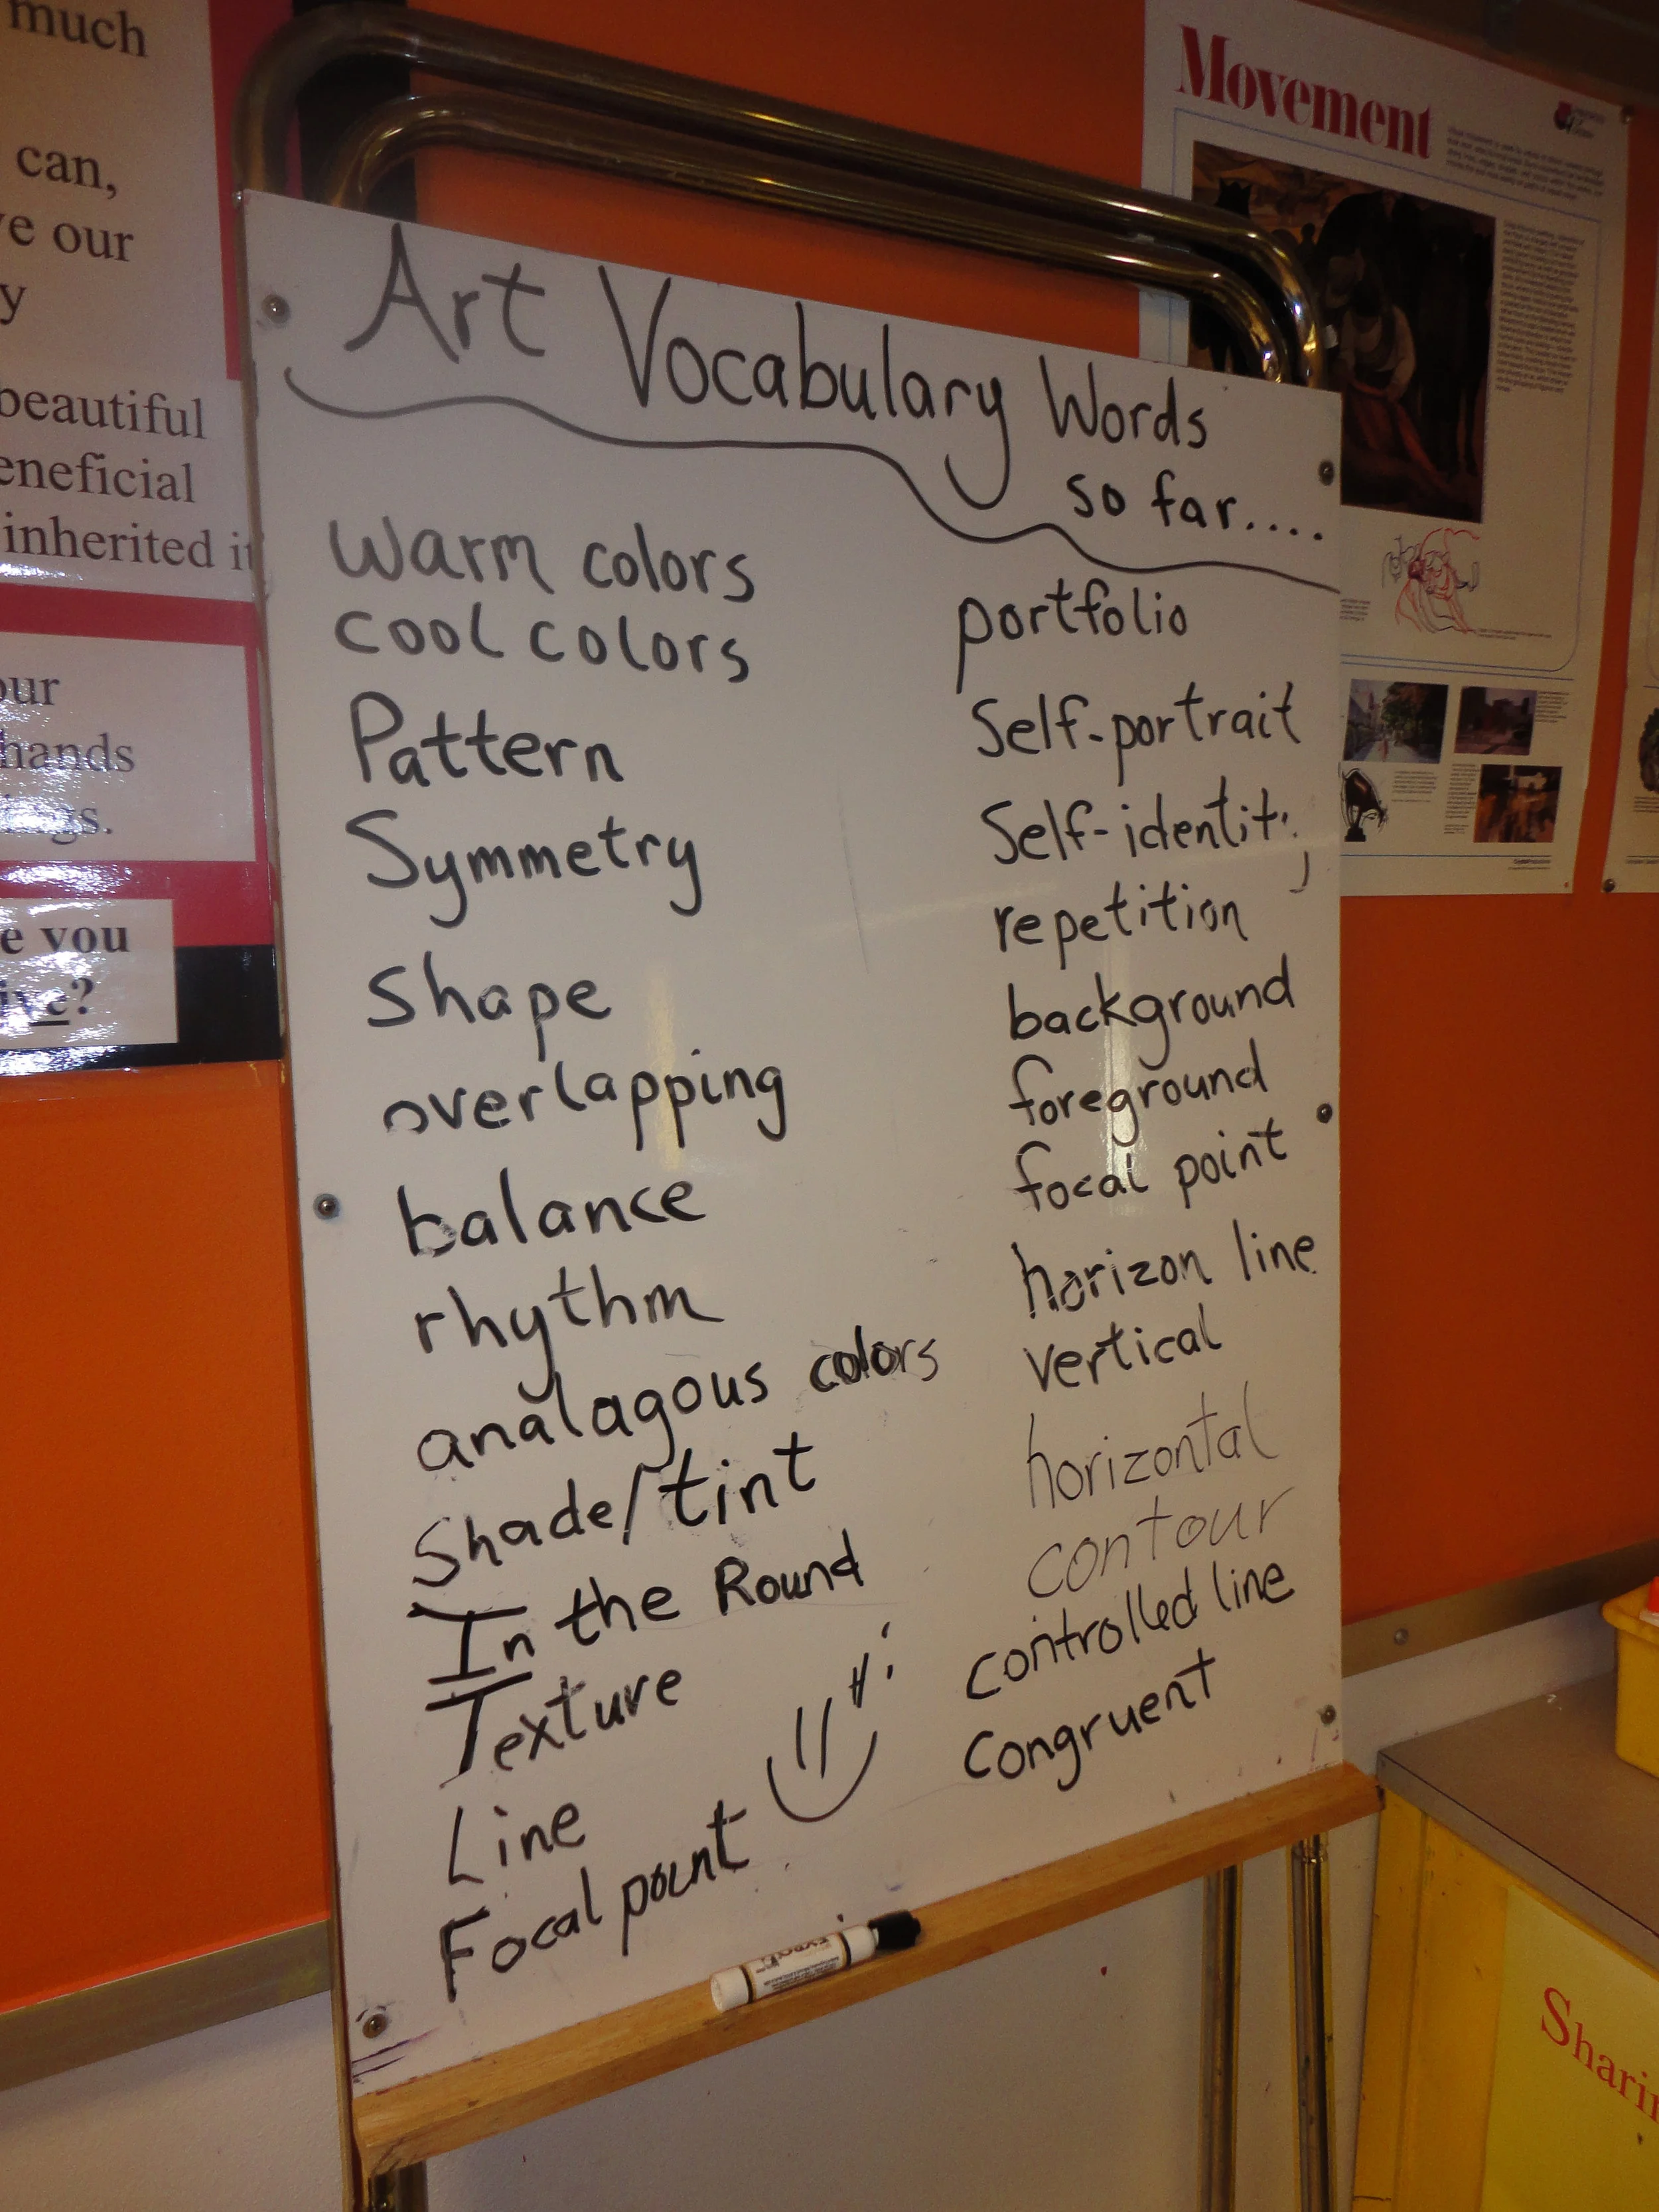 much
can,
ve our
y
beautiful
eneficial
inherited it
our
hands
ngs.
e you
ive?
Movement
Art Vocabulary Words
so far....
Warm colors
cool colors
Pattern
Symmetry
Shape
overlapping
balance
rhythm
analagous colors
Shade/tint
In the Round
Texture
Line
Focal point
portfolio
Self-portrait
Self-identity
repetition
background
foreground
focal point
horizon line
vertical
horizontal
contour
controlled line
Congruent
EXPO
Sharin